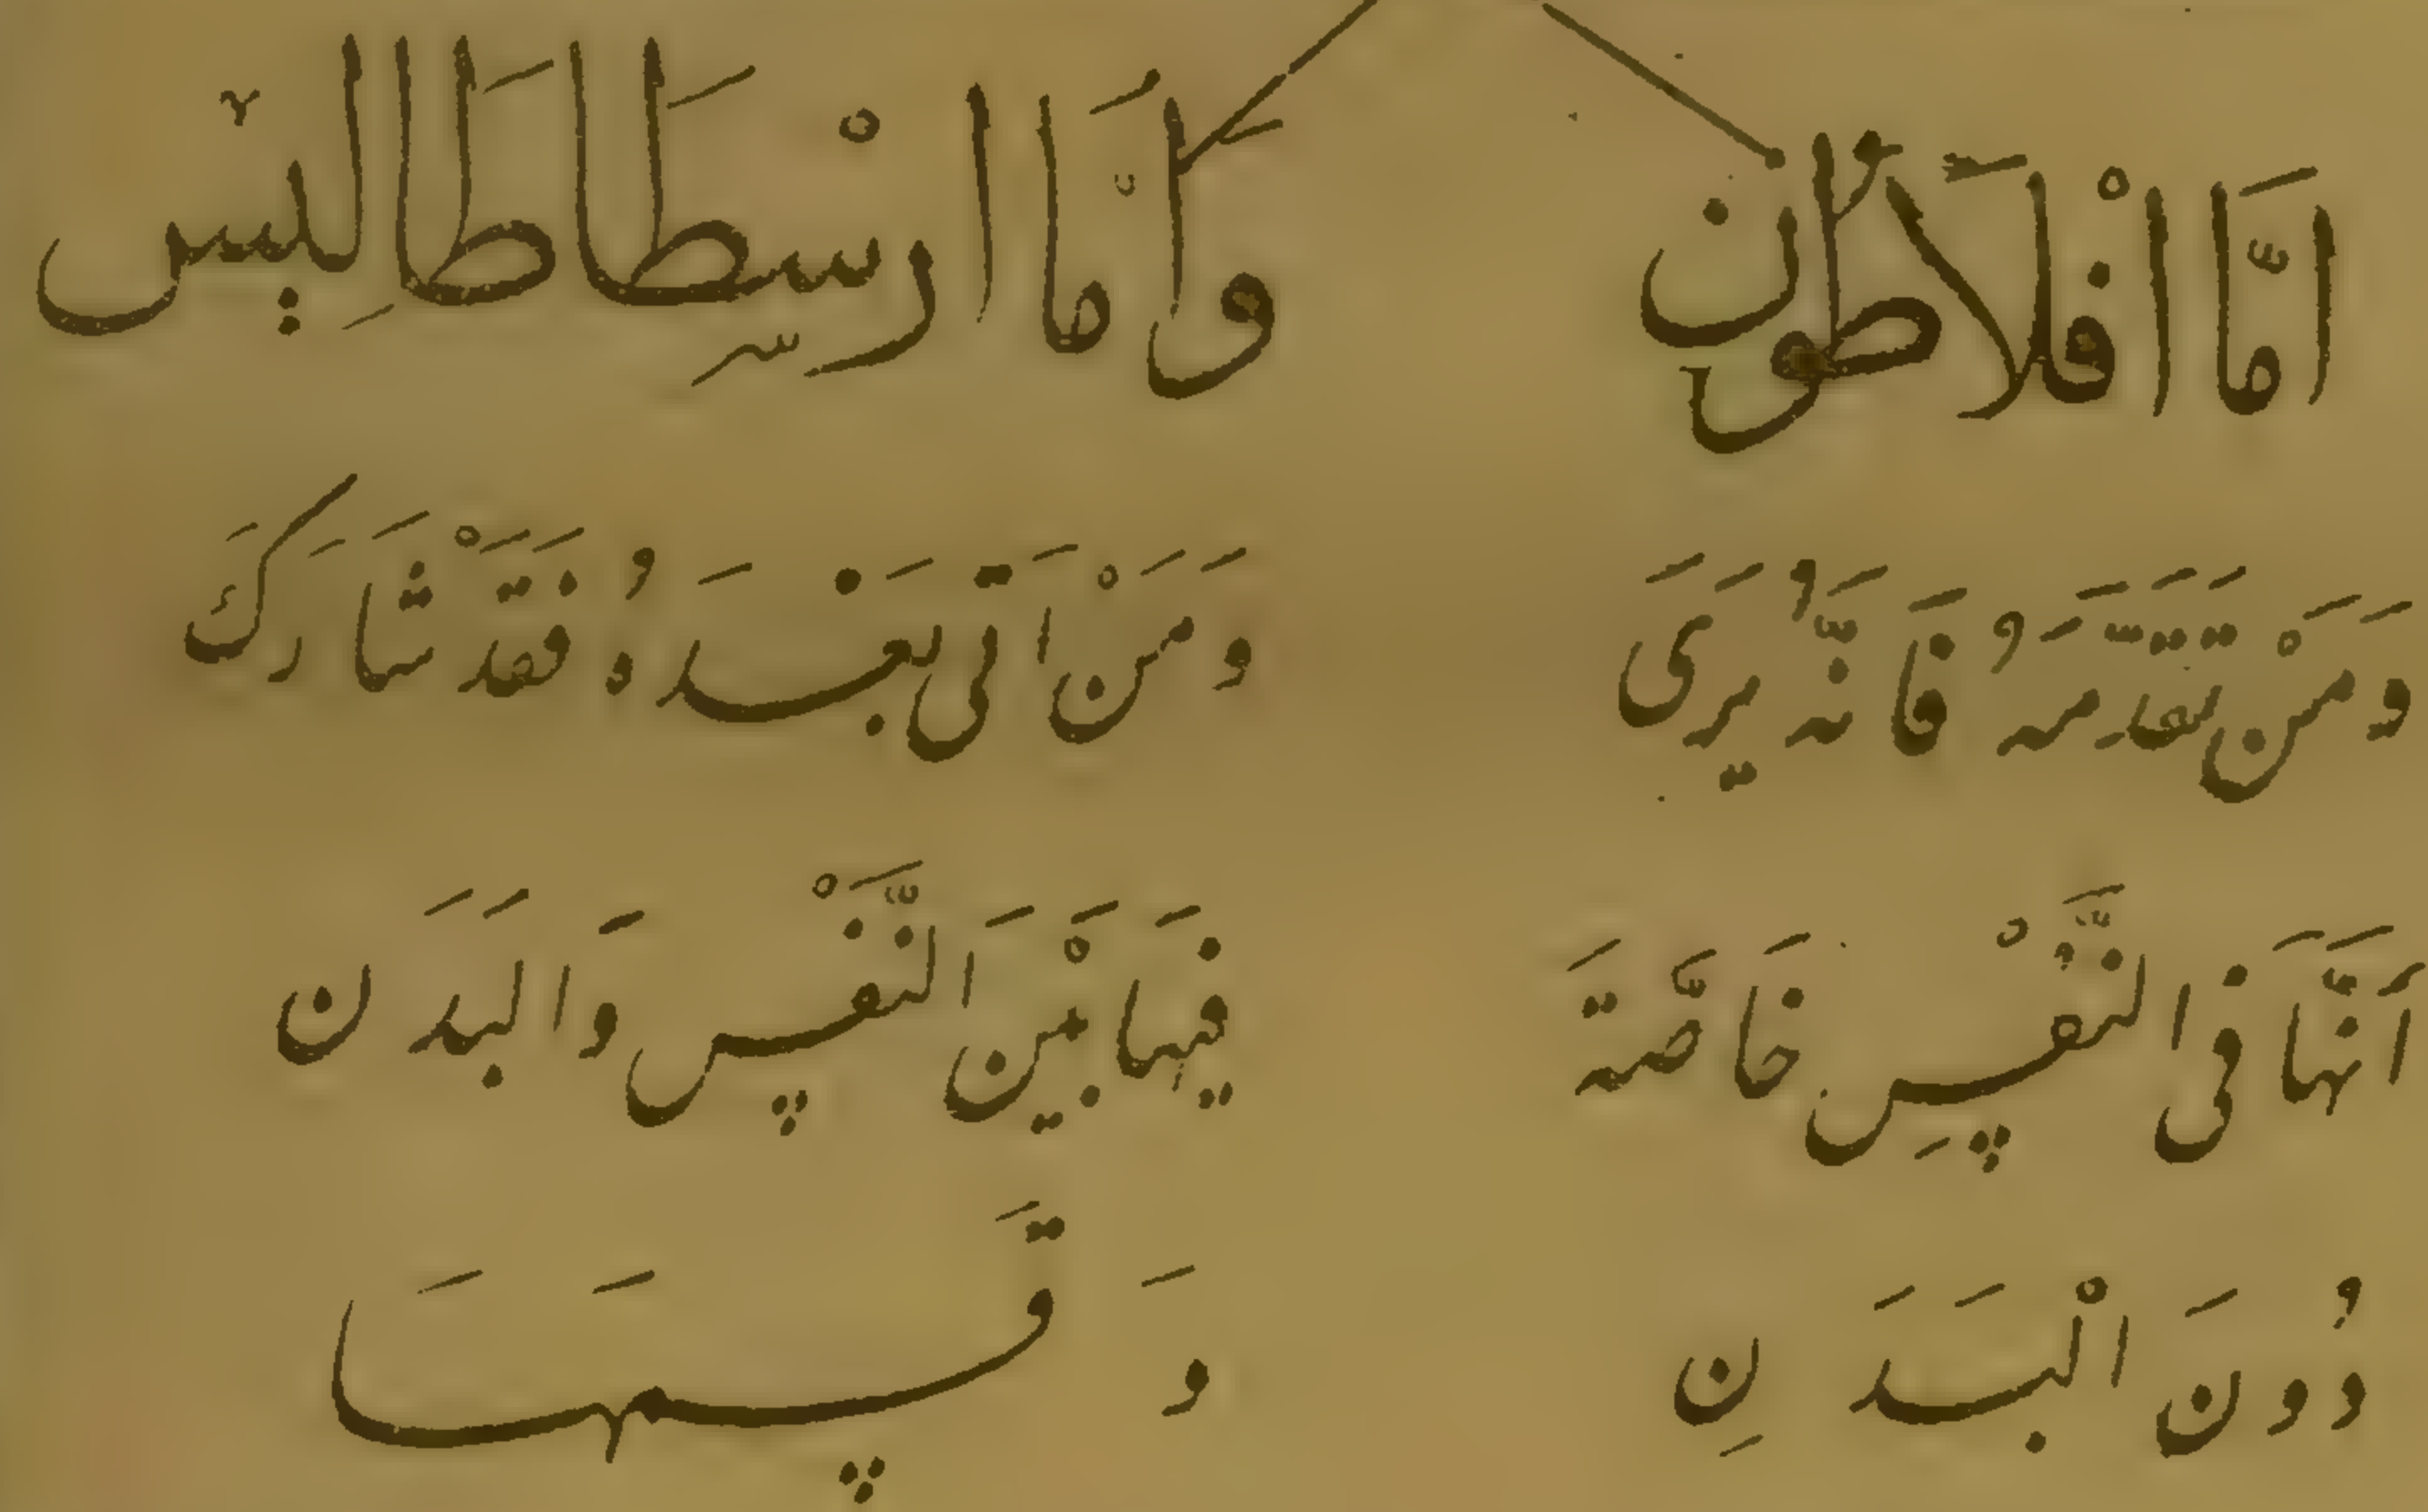 اَمَّا اَفْلَاطُون
وَمَنْ تَقَدَّمَهُ فَاَنَّهُ يَرَى
اَنَّهَا فى النَّفْسِ خَاصَّةَ
دُونَ الْبَدَنِ
وَاَمَّا ارْسِطَاطَالِيس
وَمَنْ اَتَى بَعْدَهُ فَقَدْ شَارَكَ
فيهَا بَيْنَ النَّفْس وَالبَدَن
وَ قَسمَهَا